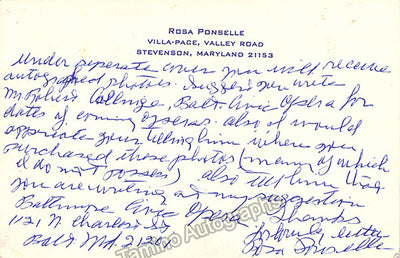 ROSA PONSELLE
VILLA-PACE, VALLEY ROAD
STEVENSON, MARYLAND 21153
Under seperate cover you will receive
autographed photos. Suggest you write
Mr Robert Collinge, Balt. Civic Opera for
dates of coming operas. also I would
appreciate your telling him where you
purchased these photos (many of which
I do not possess). also tell him that
you are writing at my suggestion
Baltimore Civic Opera, Thanks
1121 N Charles St
Balt Md. 21201
Rosa Ponselle
Tamino Autographs